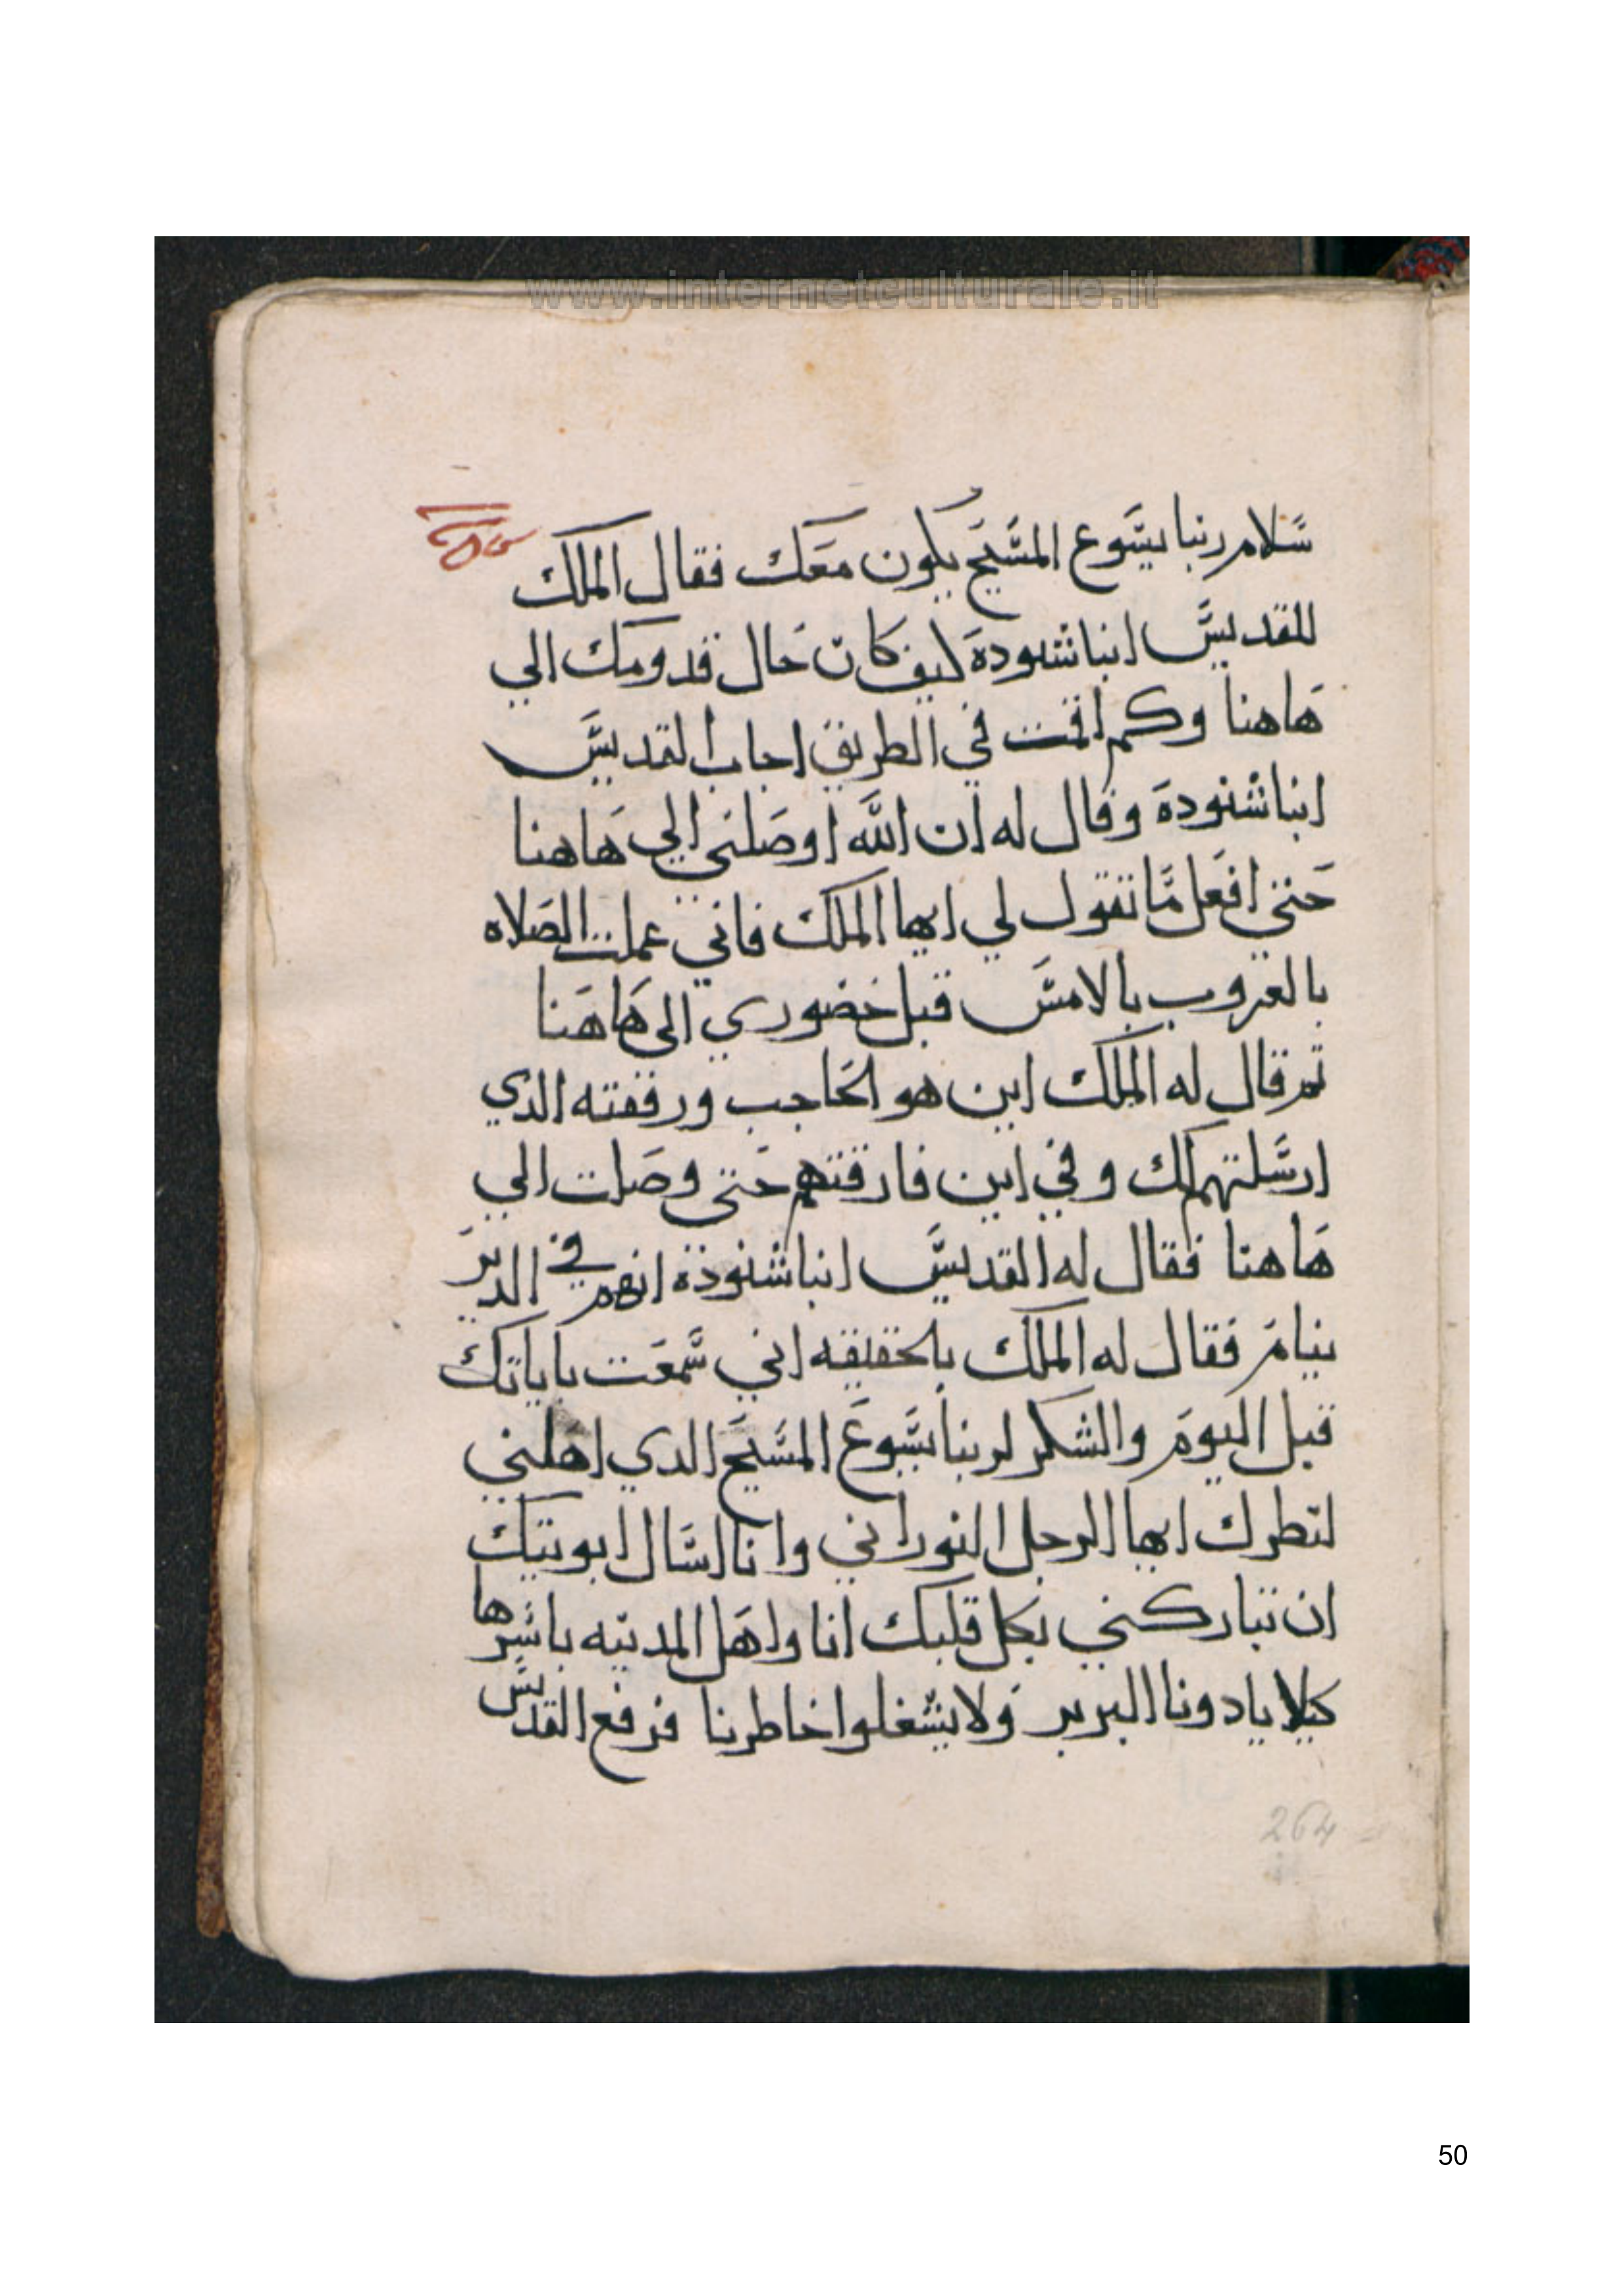 www.internetculturale.it
سلام ربنا يسوع المسيح يكون معك فقال الملك
للقديس انبا شنودة كيف كان حال قدومك الي
هاهنا وكم اقمت في الطريق اجاب القديس
انبا شنودة وقال له ان الله اوصلني الي هاهنا
حتي افعل ما تقول لي ايها الملك فاني عملت الصلاه
بالغروب بالامس قبل حضوري الي هاهنا
تم قال له الملك اين هو الحاجب ورفقته الدي
ارسلتهم لك وفي اين فارقتهم حتي وصلت الي
هاهنا فقال له القديس انبا شنودة انهم في الدير
نيام فقال له الملك بالحقيقه اني سمعت باياتك
قبل اليوم والشكر لربنا يسوع المسيح الدي اهلني
لنظرك ايها الرجل النوراني وانا اسال ابوتيك
ان تباركني بكل قلبك انا واهل المدينه باسرها
كيلا يادونا البربر ولا يشغلوا خاطرنا فرفع القديس
264
50